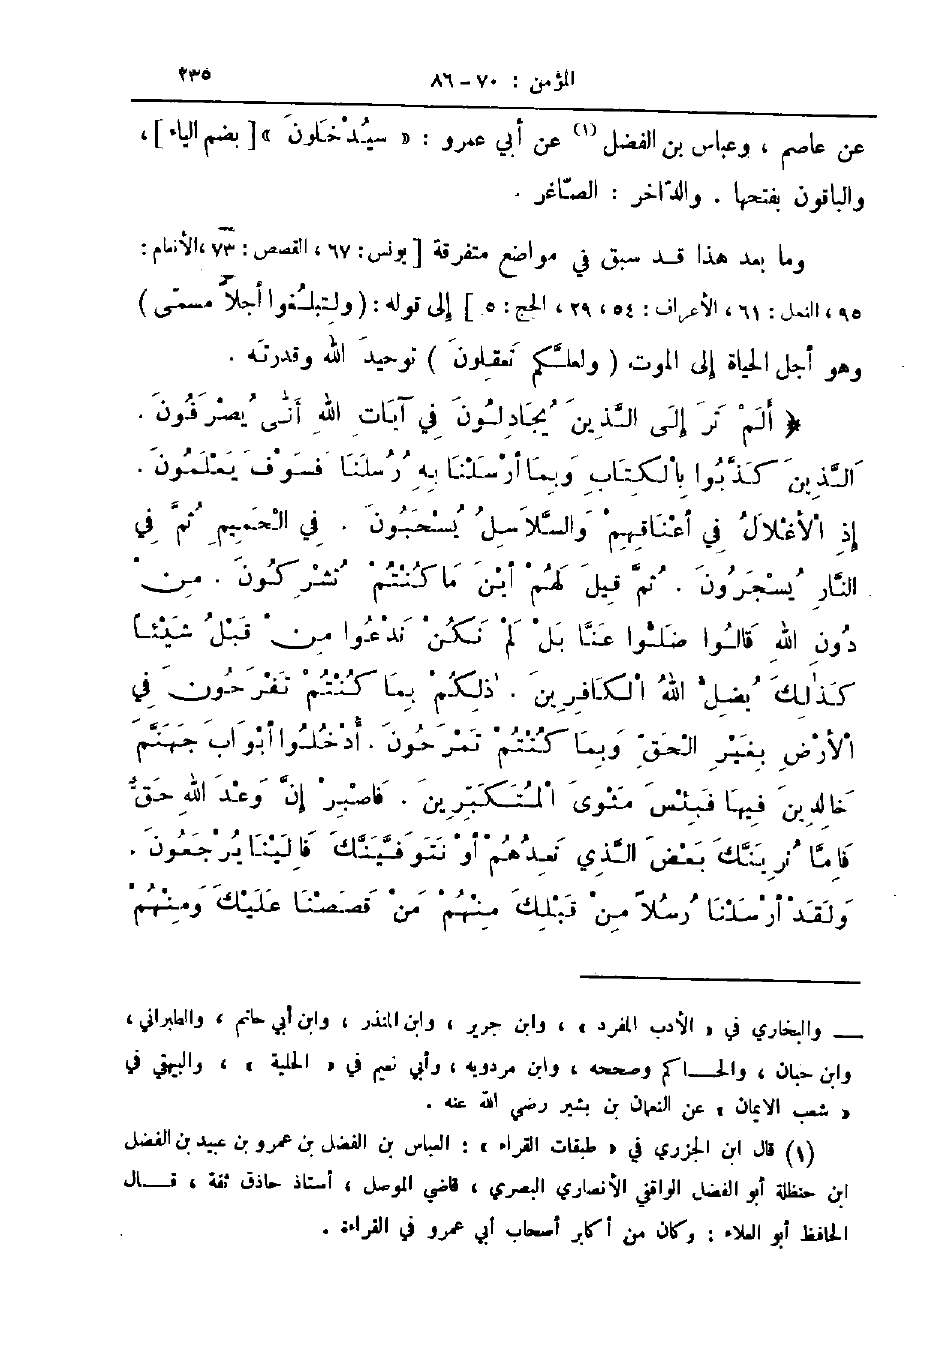 المؤمن : ٧٠ – ٨٦ ٢٣٥
عن عاصم ، وعباس بن الفضل (١) عن أبي عمرو : « سيُدْخَلونَ »[ بضم الياء ] ،
والباقون بفتحها . والدّاخر : الصّاغر .
وما بعد هذا قد سبق في مواضع متفرقة [ يونس : ٦٧ ، القصص : ٧٣ ،الأنعام :
٩٥ ، النمل : ٦١ ، الأعراف : ٥٤ ، ٢٩ ، الحج : ٥ ] إلى قوله : ( ولتبلُغوا أجلاً مسمّى )
وهو أجل الحياة إلى الموت ( ولعلَّكم تَعقِلونَ ) توحيدَ الله وقدرتَه .
﴿ أَلَمْ تَرَ إِلَى الَّذِينَ يُجَادِلُونَ فِي آيَاتِ اللهِ أَنَّى يُصْرَفُونَ .
اَلَّذِينَ كَذَّبُوا بِالْكِتَابِ وَبِمَا أَرْسَلْنَا بِهِ رُسُلَنَا فَسَوْفَ يَعْلَمُونَ .
إِذِ الْأَغْلَالُ فِي أَعْنَاقِهِمْ وَالسَّلَاسِلُ يُسْحَبُونَ . فِي الْحَمِيمِ ثُمَّ فِي
النَّارِ يُسْجَرُونَ . ثُمَّ قِيلَ لَهُمْ أَيْنَ مَا كُنْتُمْ تُشْرِكُونَ . مِنْ
دُونِ اللهِ قَالُوا ضَلُّوا عَنَّا بَلْ لَمْ نَكُنْ نَدْعُوا مِنْ قَبْلُ شَيْئاً
كَذَٰلِكَ يُضِلُّ اللهُ الْكَافِرِينَ . ذٰلِكُمْ بِمَا كُنْتُمْ تَفْرَحُونَ فِي
الْأَرْضِ بِغَيْرِ الْحَقِّ وَبِمَا كُنْتُمْ تَمْرَحُونَ . أُدْخُلُوا أَبْوَابَ جَهَنَّمَ
خَالِدِينَ فِيهَا فَبِئْسَ مَثْوَى الْمُتَكَبِّرِينَ . فَاصْبِرْ إِنَّ وَعْدَ اللهِ حَقٌّ
فَإِمَّا نُرِيَنَّكَ بَعْضَ الَّذِي نَعِدُهُمْ أَوْ نَتَوَفَّيَنَّكَ فَإِلَيْنَا يُرْجَعُونَ .
وَلَقَدْ أَرْسَلْنَا رُسُلاً مِنْ قَبْلِكَ مِنْهُمْ مَنْ قَصَصْنَا عَلَيْكَ وَمِنْهُمْ
ــ والبخاري في « الأدب المفرد » ، وابن جرير ، وابن المنذر ، وابن أبي حاتم ، والطبراني ،
وابن حبان ، والحاكم وصححه ، وابن مردويه ، وأبي نعيم في « الحلية » ، والبيهقي في
« شعب الايمان » عن النعمان بن بشير رضي الله عنه .
(١) قال ابن الجزري في « طبقات القراء » : العباس بن الفضل بن عمرو بن عبيد بن الفضل
ابن حنظلة أبو الفضل الواقفي الأنصاري البصري ، قاضي الموصل ، أستاذ حاذق ثقة ، قال
الحافظ أبو العلاء : وكان من أكابر أصحاب أبي عمرو في القراءة .